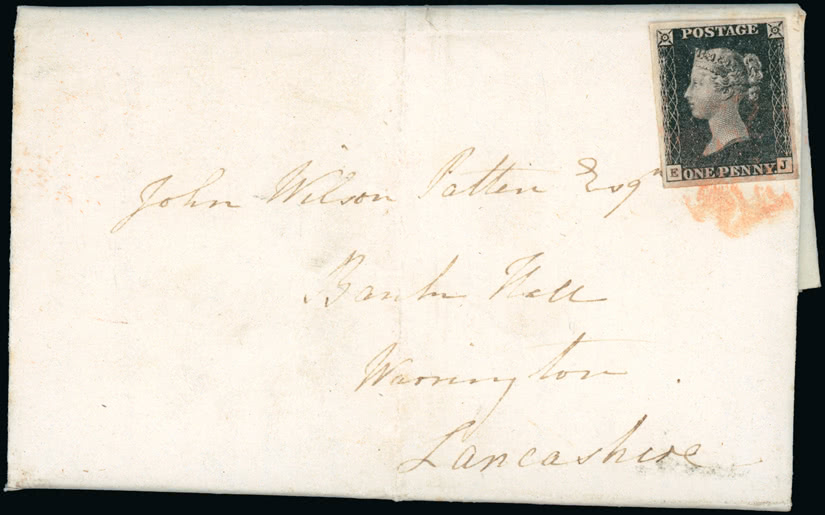 POSTAGE
E ONE PENNY J
John Wilson Patten Esqr
Bank Hall
Warrington
Lancashire